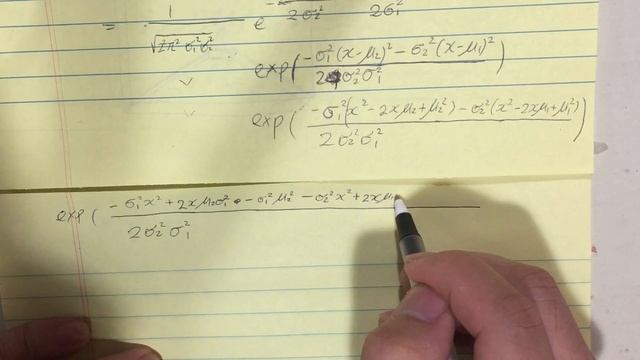 = 1 / √2π² σ₁²σ₂² e^ - / 2σ₂² 2σ₁²
exp( -σ₁²(x-μ₂)² - σ₂²(x-μ₁)² / 2σ₂²σ₁² )
exp( -σ₁²(x² - 2xμ₂+μ₂²) - σ₂²(x²-2xμ₁+μ₁²) / 2σ₂²σ₁² )
exp( -σ₁²x² + 2xμ₂σ₁² - σ₁²μ₂² - σ₂²x² + 2xμ₁ / 2σ₂²σ₁²